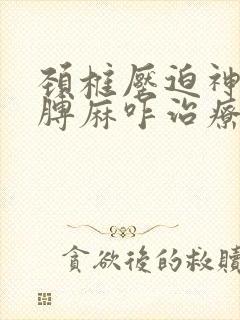 頚椎壓迫神
膊麻咋治療
貪欲後的救贖